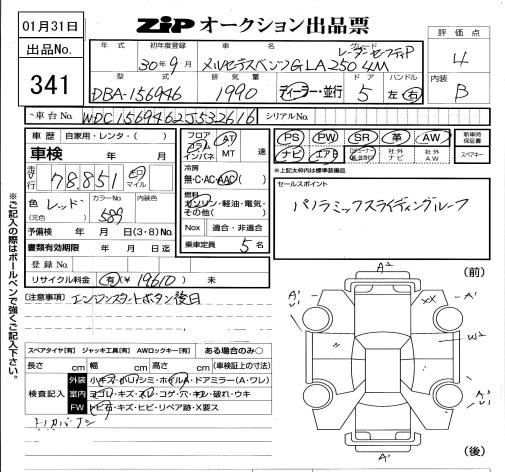 01月31日
出品No.
341
ZIP オークション出品票
評価点
4
内装
B
年式 初年度登録 車名 グレード
30年9月 メルセデスベンツGLA250 4M レーダーセーフティP
型式 排気量 ドア ハンドル
DBA-156946 1990 ディーラー・並行 5 左 右
車台No. WDC1569462J532616 シリアルNo.
車歴 自家用・レンタ・( )
車検 年 月
走行 78,851 マイル
色 レッド カラーNo. 589 内装色
(元色)
予備検 年 月 日(3・8)No.
書類有効期限 年 月 日迄
登録No.
リサイクル料金 有(¥ 19610)未
フロア コラム インパネ AT MT 速
冷房
無・C・AC・AAC( )
燃料
ガソリン・軽油・電気・その他( )
Nox 適合・非適合
乗車定員 5名
PS PW SR 革 AW 新車時保証書
ナビ エアB 社外ナビ 社外AW スペアキー
*上記太枠内は標準装備品
セールスポイント
パノラミックスライディングルーフ
注意事項 エンジンスタートボタン後日
スペアタイヤ[有] ジャッキ工具[有] AWロックキー[有] ある場合のみ○
長さ cm 幅 cm 高さ cm (車検証上の寸法)
検査記入
外装 小キズ・ホイルA・ドアミラー(A・ワレ)
室内 ヨゴレ・キズ・スレ・コゲ・穴・破れ・ウキ
FW トビ石・キズ・ヒビ・リペア跡・X要ス
※ご記入の際はボールペンで強くご記入下さい。
(前)
A2
A'
U'
XX
A'
W2
A'
(後)